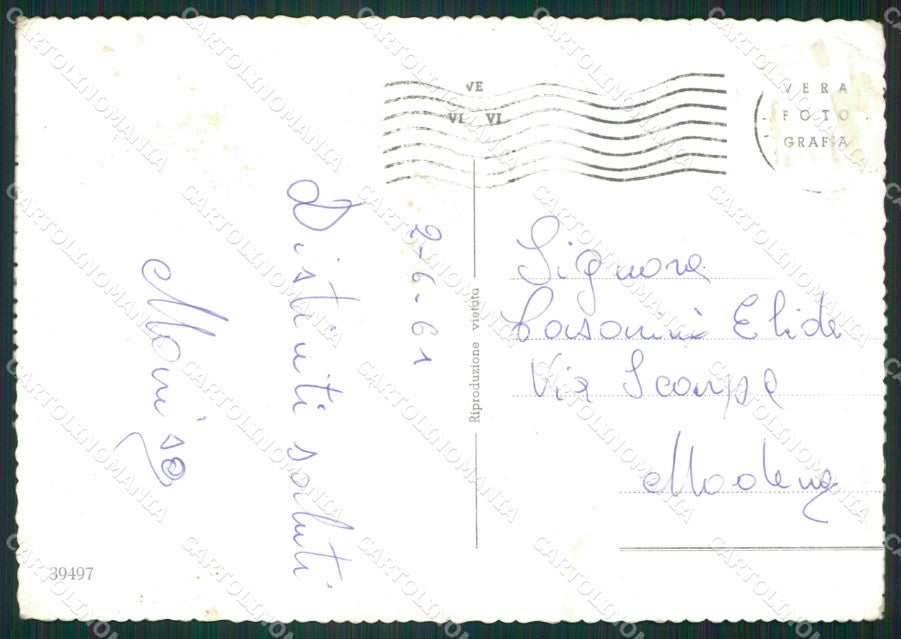 VE
VI VI
VERA
FOTO
GRAFIA
2-6-61
Distinti saluti
Signora
Elide
Via Scarpa
Modena
Riproduzione vietata
39497
CARTOLINOMANIA